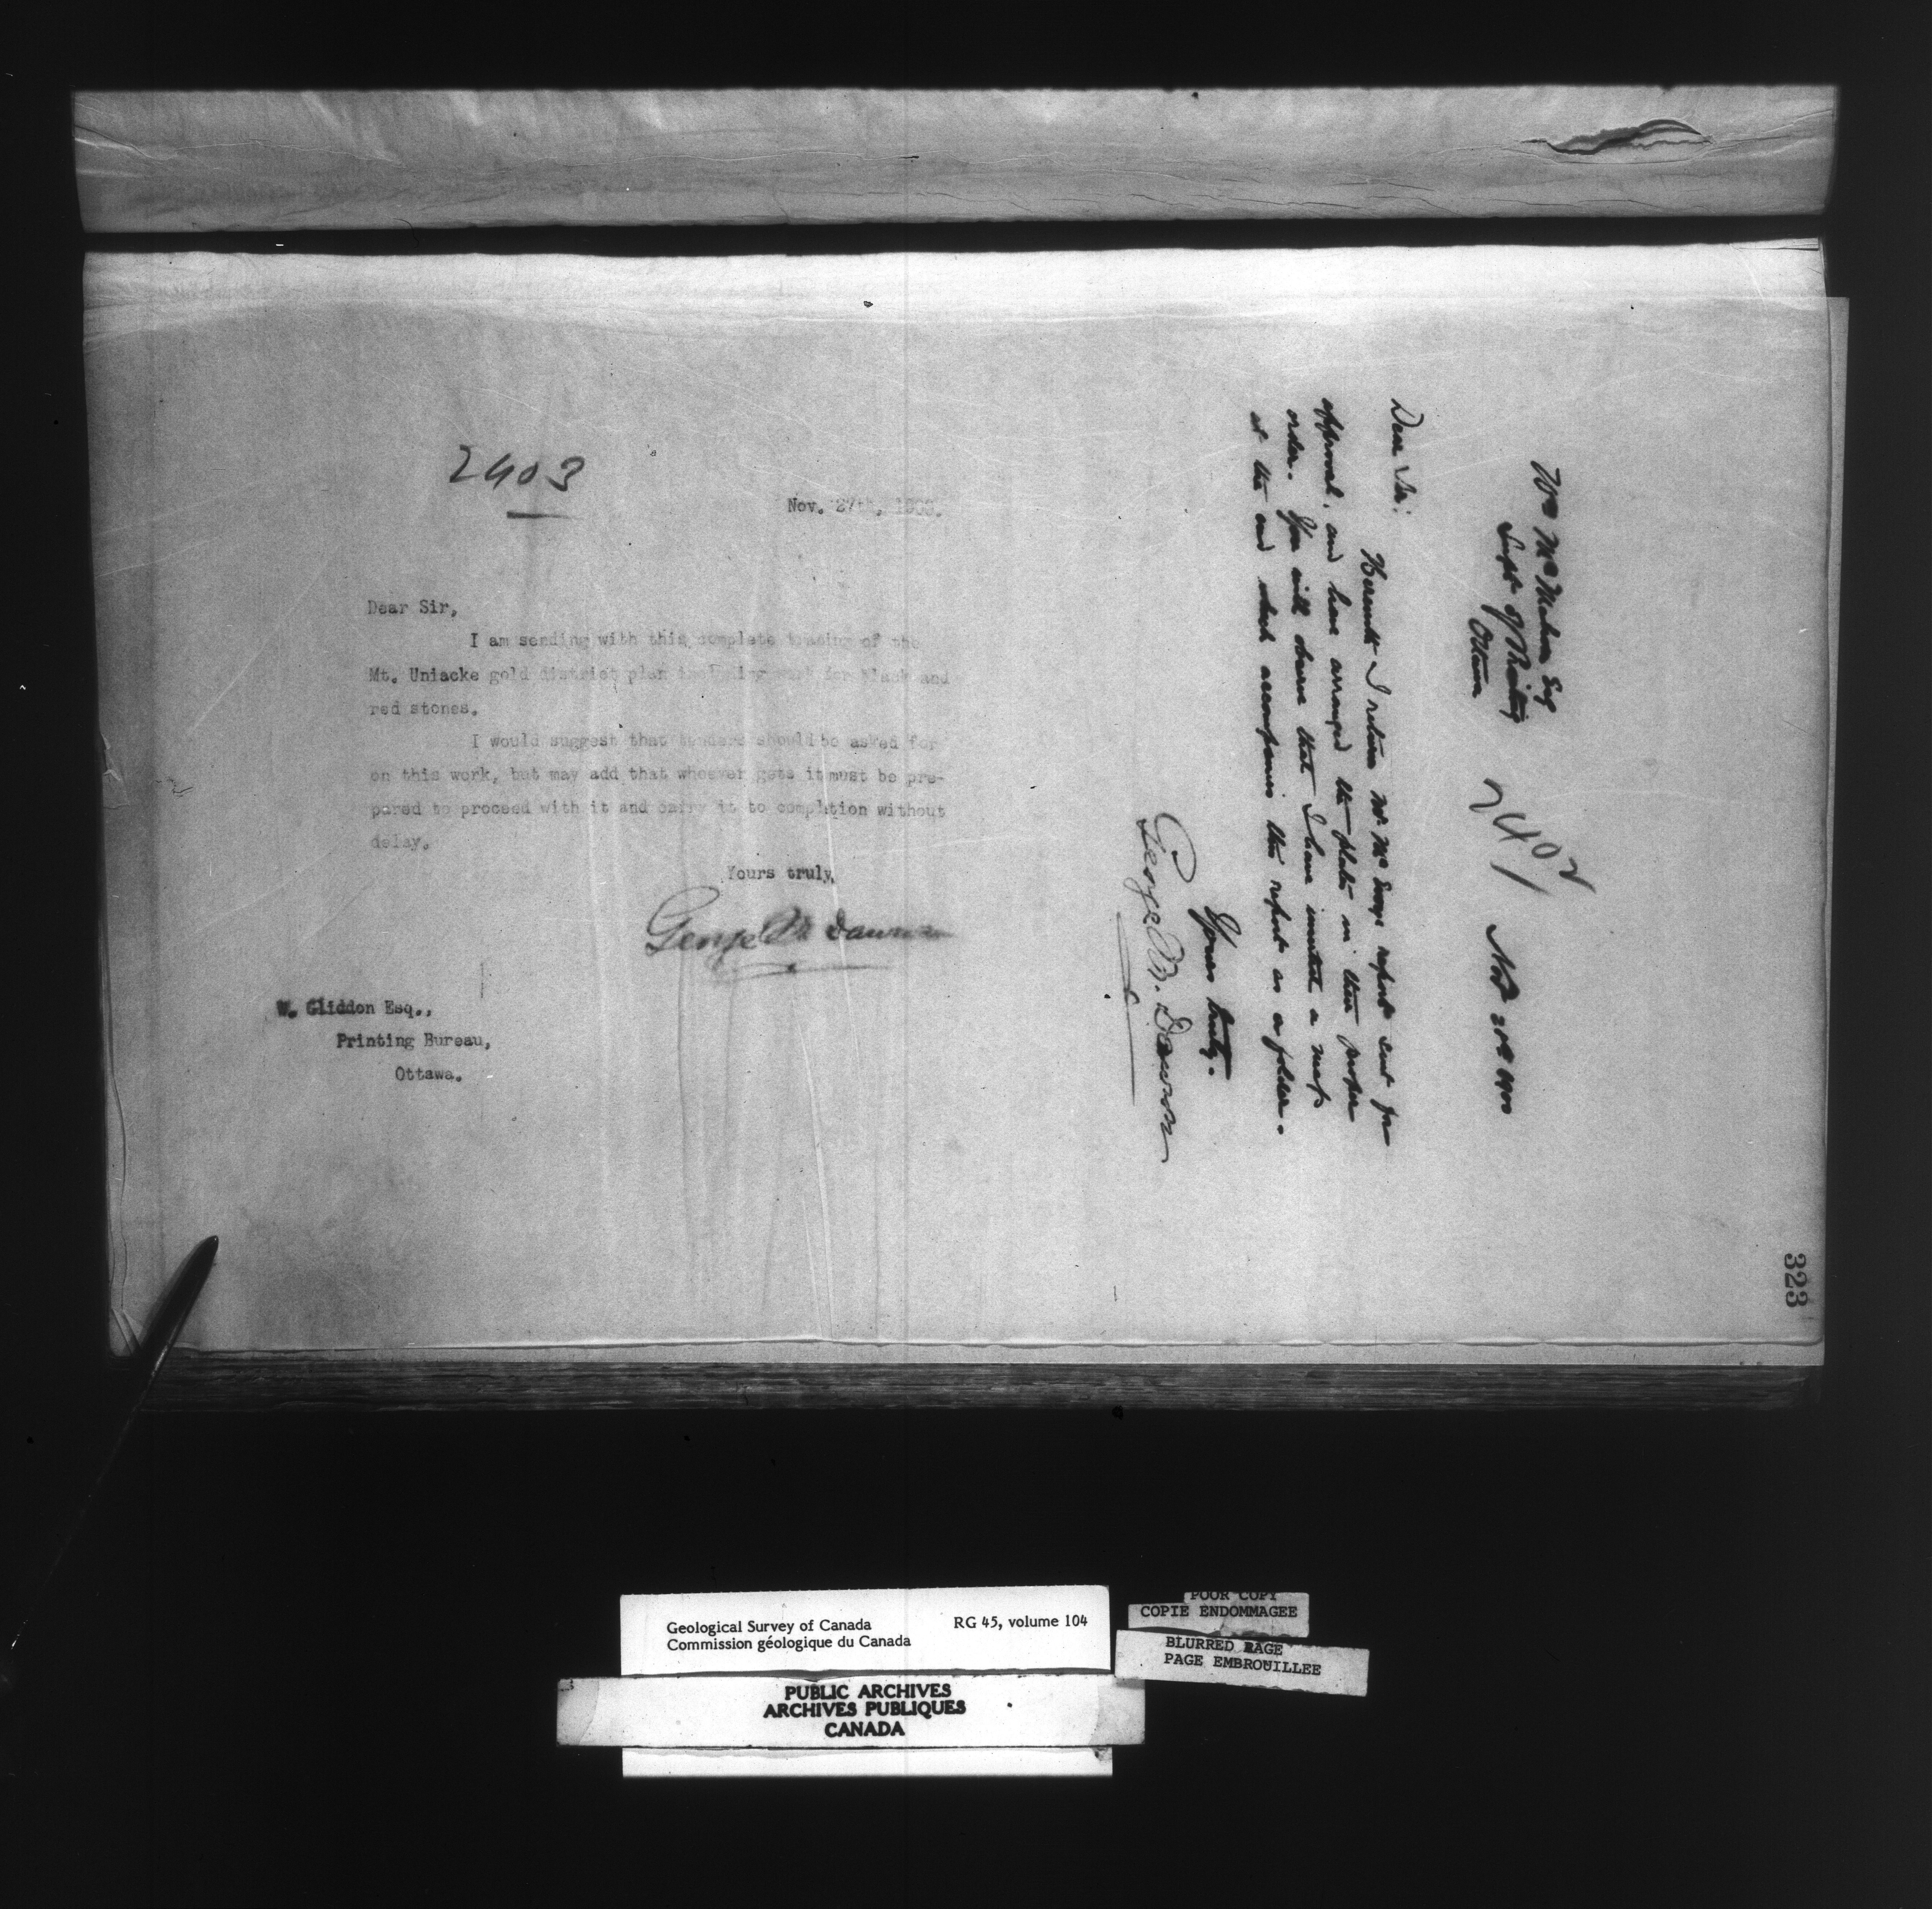 2403
Nov. 27th, 1900.
Dear Sir,
I am sending with this complete tracing of the
Mt. Uniacke gold district plan including work for black and
red stones.
I would suggest that tenders should be asked for
on this work, but may add that whoever gets it must be pre-
pared to proceed with it and carry it to completion without
delay.
Yours truly,
George M. Dawson
W. Gliddon Esq.,
Printing Bureau,
Ottawa.
323
2402
Wm McMahon Esq
Supt of Printing
Ottawa
Dear Sir:
Herewith I return Mr. McEvoys report sent for
approval, and have arranged the plates in their proper
order. You will observe that I have inserted a map
at the end which accompanies the report as a folder.
Yours truly.
George M. Dawson
Geological Survey of Canada RG 45, volume 104
Commission géologique du Canada
PUBLIC ARCHIVES
ARCHIVES PUBLIQUES
CANADA
POOR COPY
COPIE ENDOMMAGEE
BLURRED PAGE
PAGE EMBROUILLEE